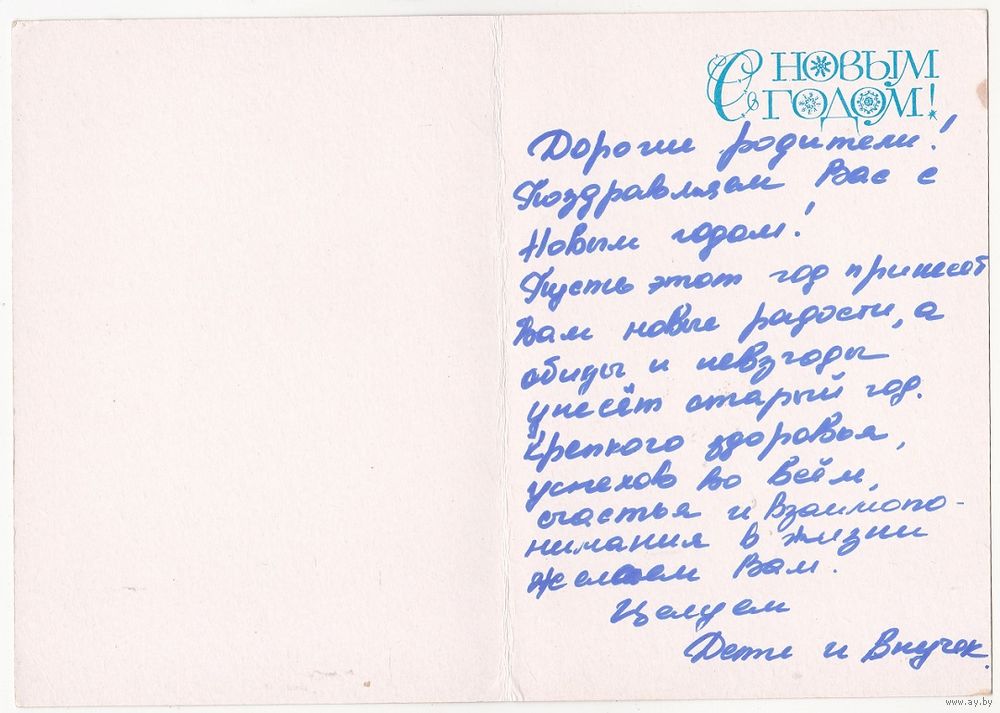 С НОВЫМ
ГОДОМ!
Дорогие родители!
Поздравляем Вас с
Новым годом!
Пусть этот год принесёт
Вам новые радости, а
обиды и невзгоды
унесёт старый год.
Крепкого здоровья,
успехов во всём,
счастья и взаимопо-
нимания в жизни
желаем Вам.
Целуем
Дети и Внучек.
www.ay.by